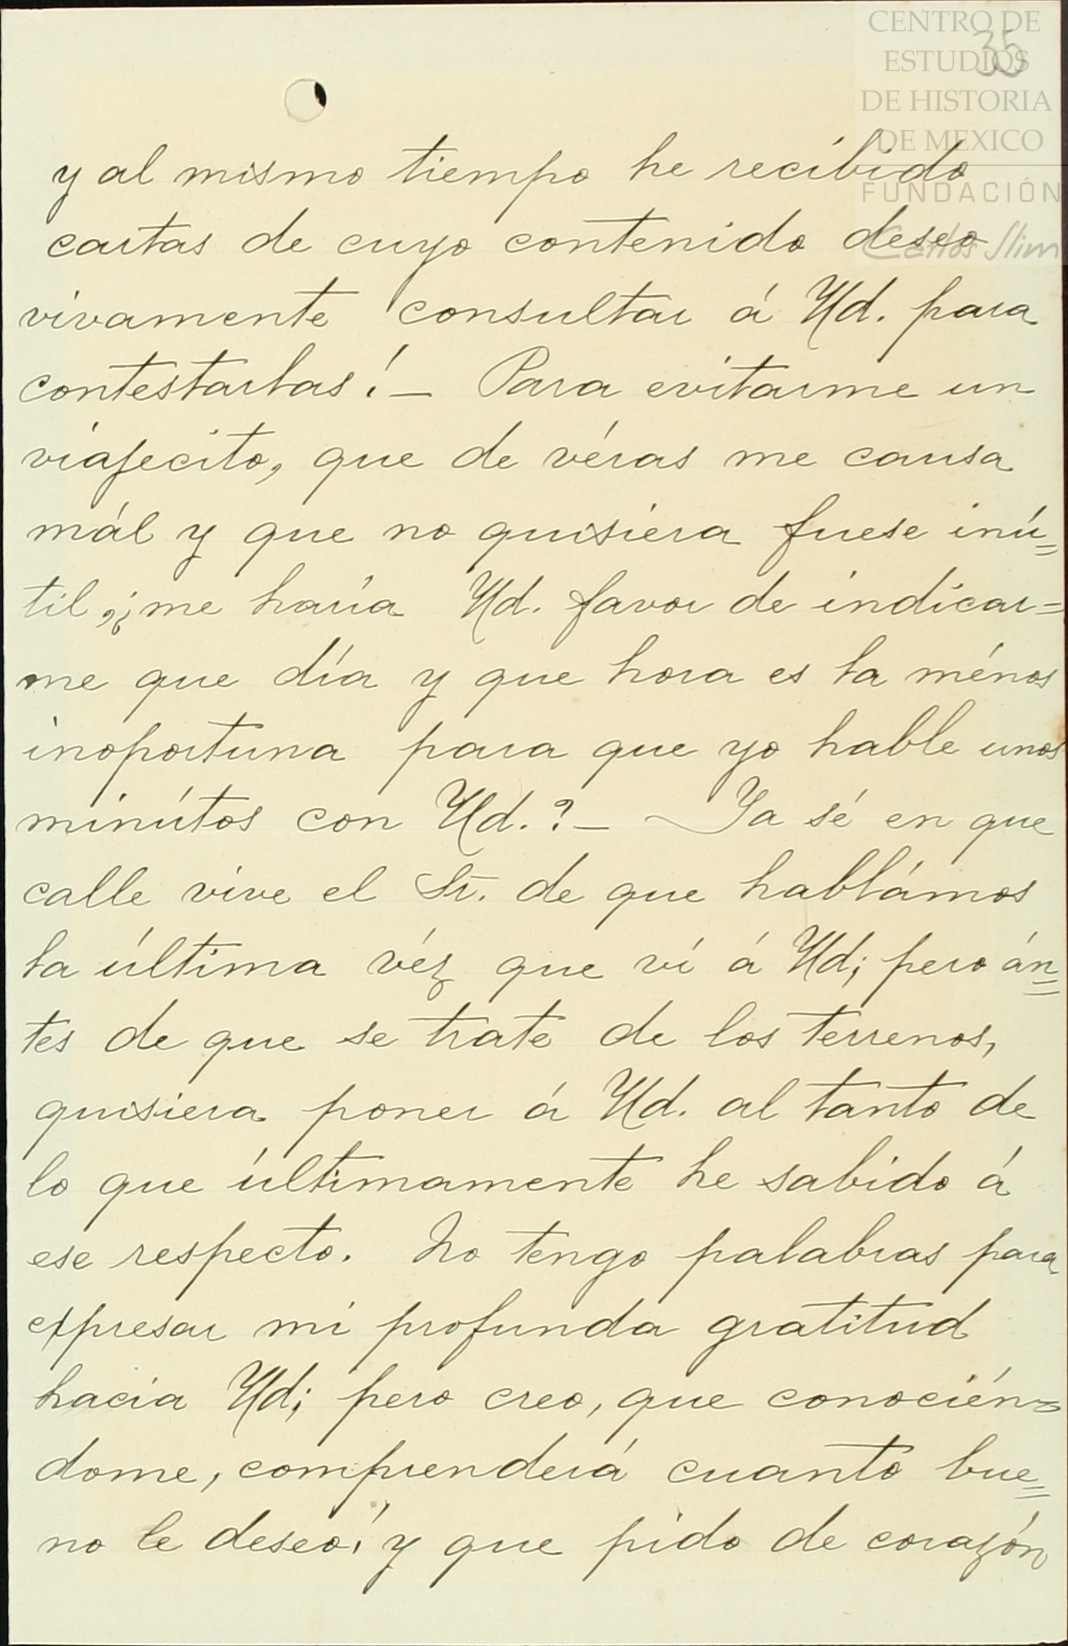 CENTRO DE
ESTUDIOS
DE HISTORIA
DE MEXICO
FUNDACIÓN
Carlos Slim
35
y al mismo tiempo he recibido
cartas de cuyo contenido deseo
vivamente consultar á Ud. para
contestarlas! — Para evitarme un
viajecito, que de véras me causa
mál y que no quisiera fuese inú=
til, ¿me haría Ud. favor de indicar=
me que día y que hora es la ménos
inoportuna para que yo hable unos
minútos con Ud.? — Ya sé en que
calle vive el Sr. de que hablámos
la última véz que ví á Ud; pero án=
tes de que se trate de los terrenos,
quisiera poner á Ud. al tanto de
lo que últimamente he sabido á
ese respecto. No tengo palabras para
expresar mi profunda gratitud
hacia Ud; pero creo, que conocién=
dome, comprenderá cuanto bue=
no le deseo! y que pido de corazón